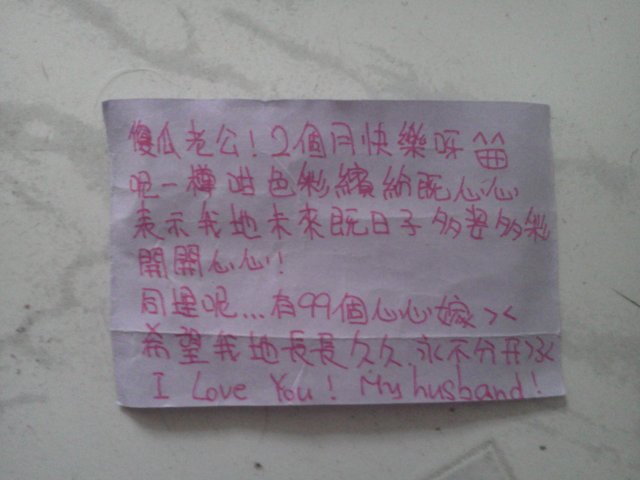 傻瓜老公！2個月快樂呀^^
呢一樽咁色彩繽紛既心心
表示我地未來既日子多姿多彩
開開心心！
同埋呢...有99個心心嫁><
希望我地長長久久永不分開><
I Love You! My husband!